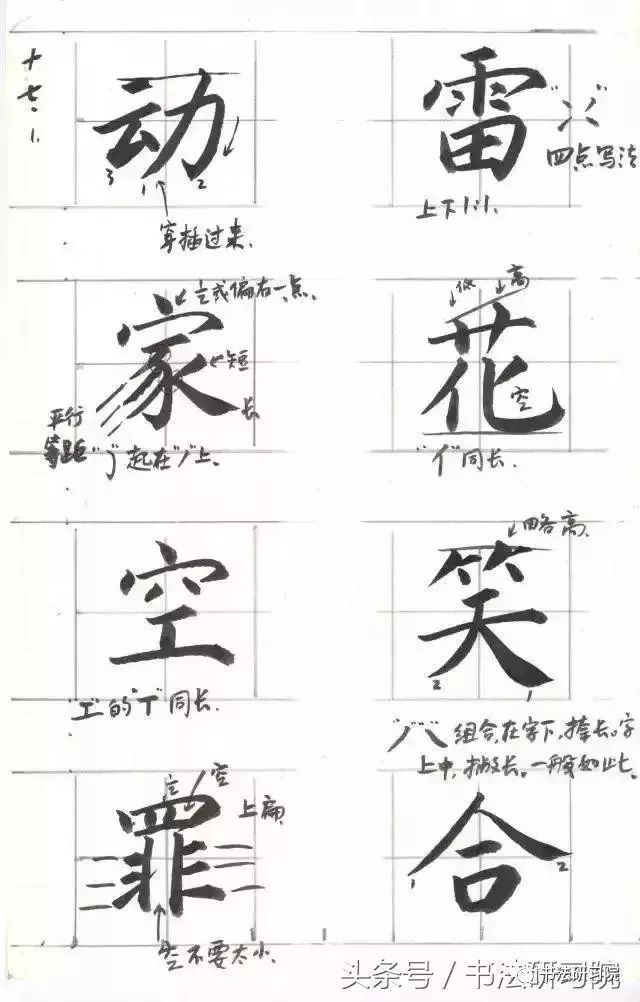 十七.1.
动
3 1 2
穿插过来.
雷
四点写法
上下1:1.
家
立式偏右一点.
短
长
平行
等距
"丿"起在"丿"上.
花
低 高
空
"亻"同长.
空
"工"的"丅"同长.
笑
略高
2 1
"八"组合,在字下,捺长。字
上中,撇长。一般如此。
罪
立 空
上扁
空不要太小.
合
1 2
头条号/书法研习院
书法研习院